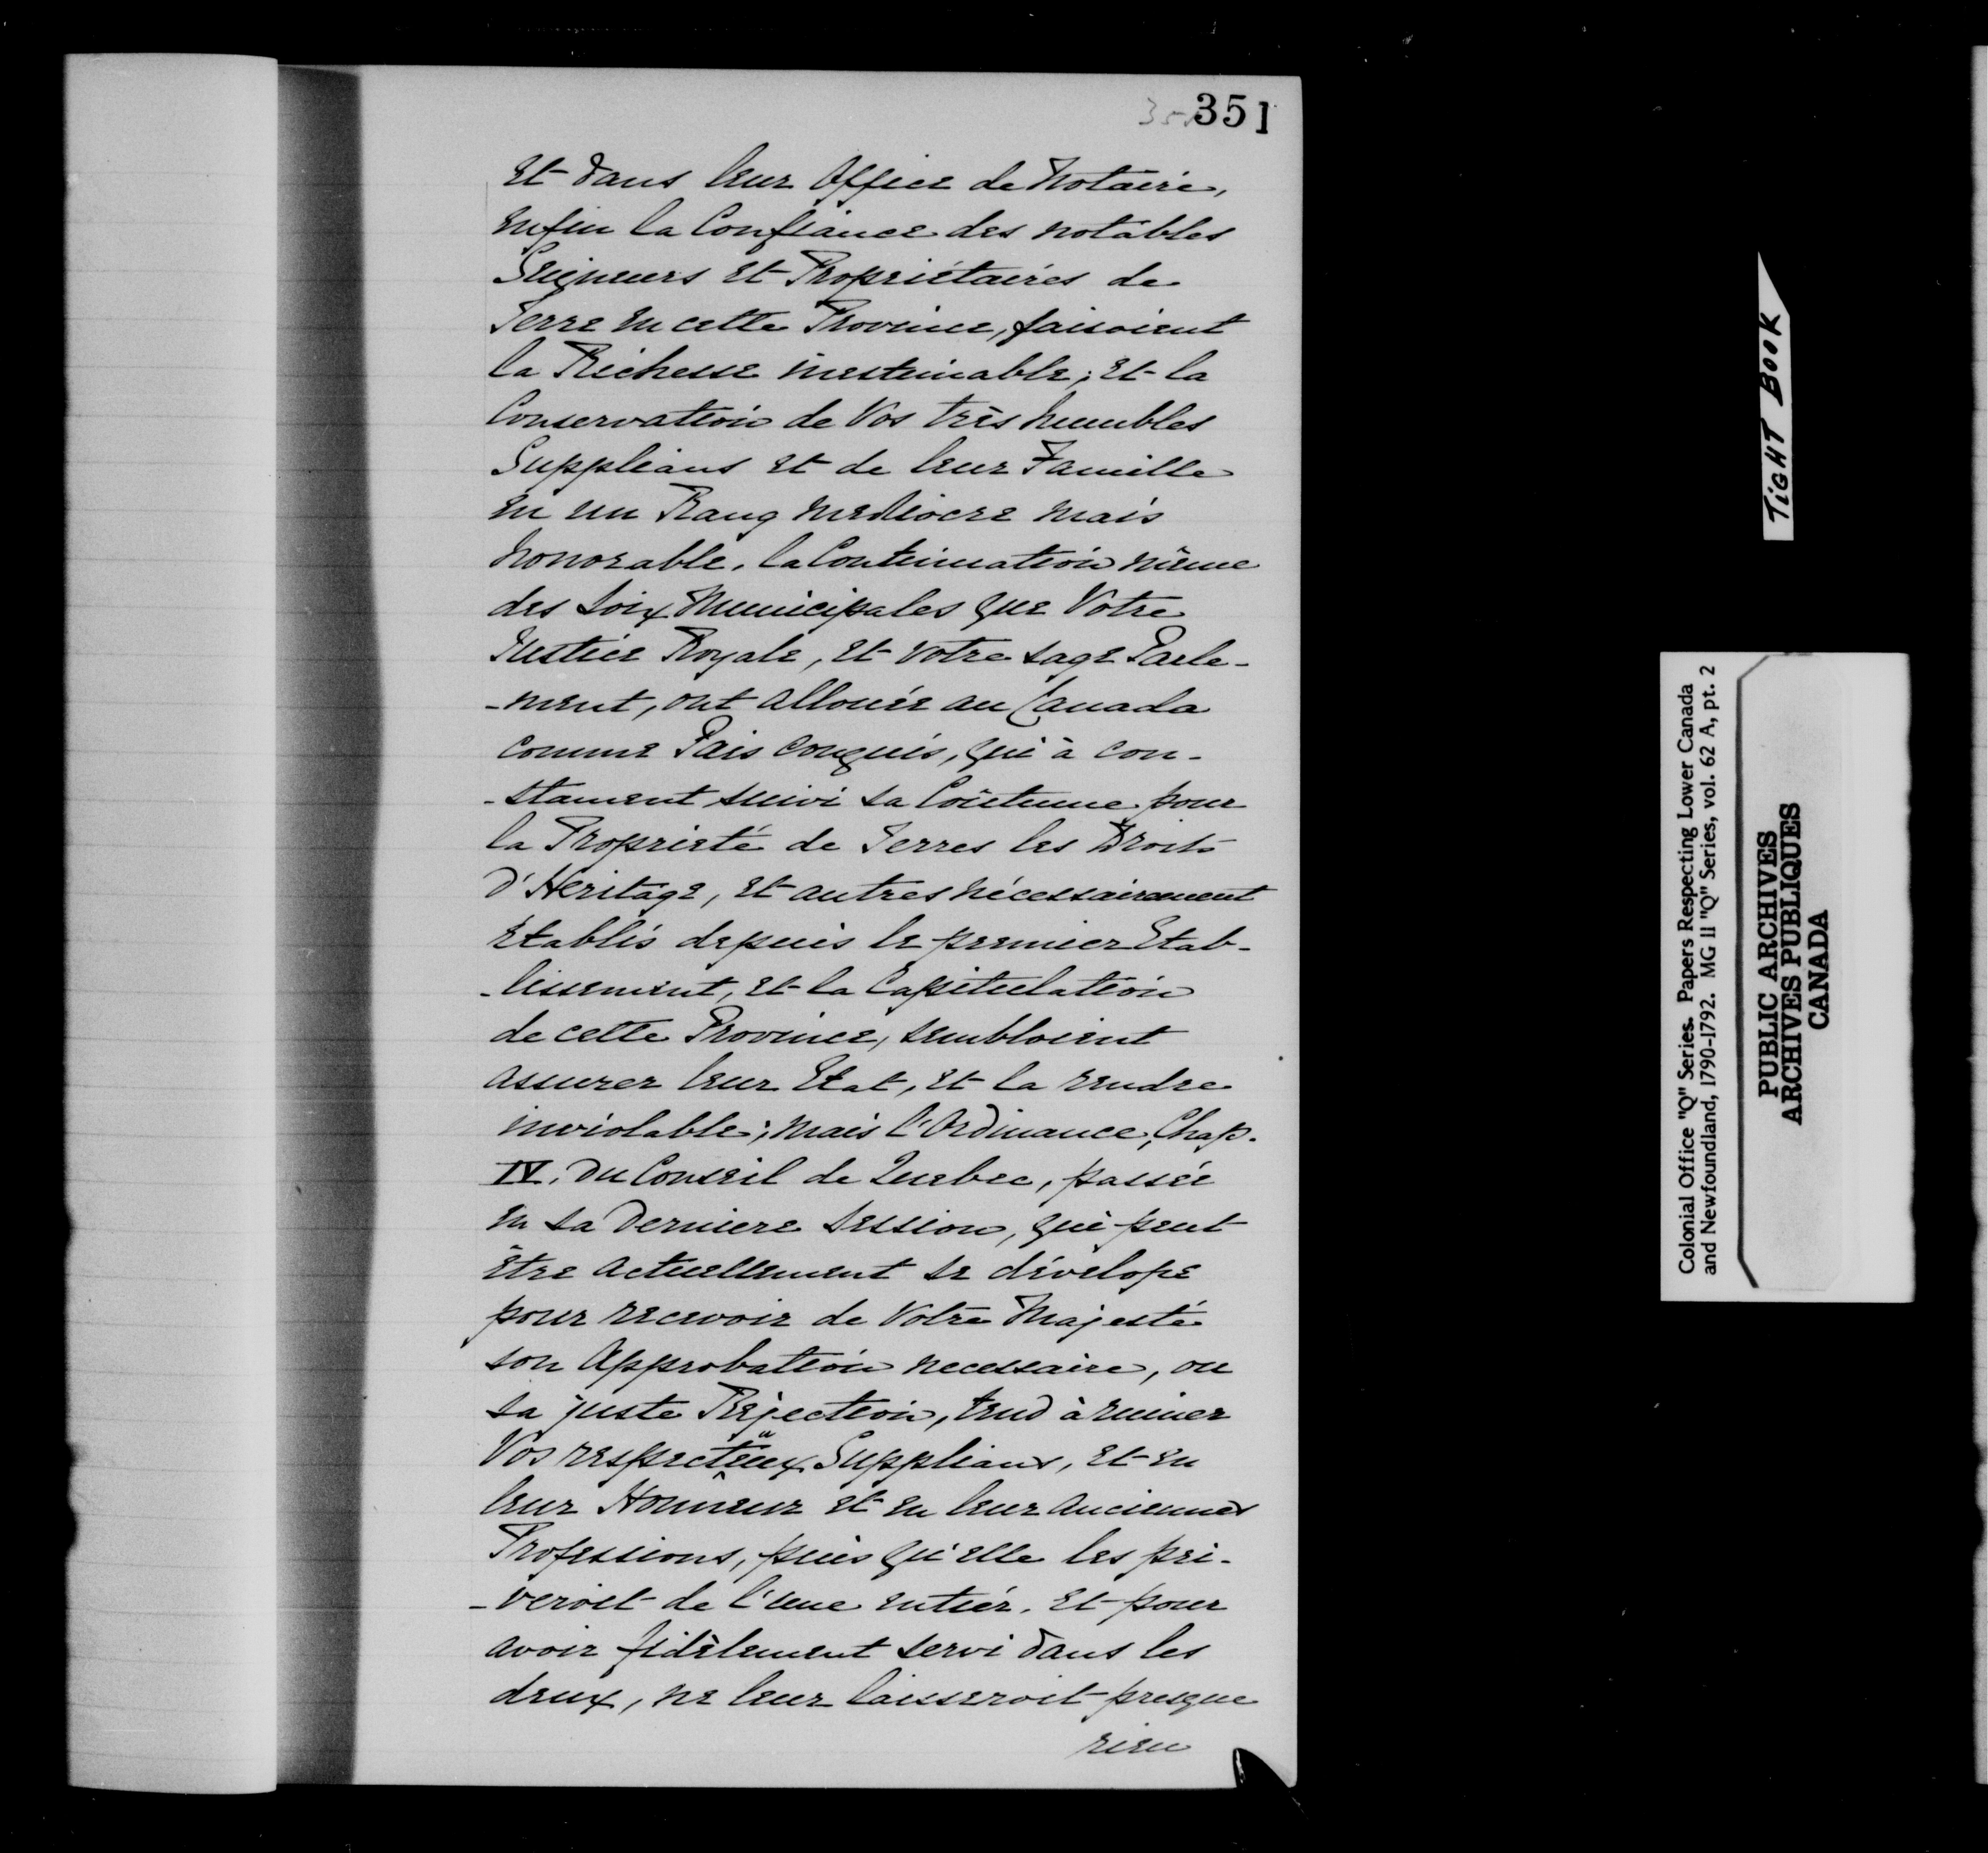 351
et dans leur Office de Notaire,
enfin la Confiance des notables
Seigneurs et Propriétaires de
Terre en cette Province, faisoient
la Richesse inestimable; et la
Conservation de Vos très humbles
Supplians et de leur Famille
en un Rang mediocre mais
honorable. la Continuation même
des Loix Municipales que Votre
Justice Royale, et votre sage Parle-
-ment, ont allouée au Canada
comme Païs conquis, qui à con-
-stament suivi sa Coûtume pour
la Proprieté de Terres les Droits
d'Heritage, et autres nécessairement
etablis depuis le premier Etab-
-lissement, et la Capitulation
de cette Province, sembloient
assurer leur Etat, et la rendre
inviolable; mais l'Ordinance, Chap.
IV. du Conseil de Quebec, passée
en sa derniere Session, qui peut
être actuellement se dévelope
pour recevoir de Votre Majesté
son Approbation necessaire, ou
sa juste Rejection, tend à ruiner
Vos respectueux Supplians, et en
leur Honneur et en leur anciennes
Professions, puis qu'elle les pri-
-veroit de l'une entiér. et pour
avoir fidèlement servi dans les
deux, ne leur laisseroit presque
rien
TIGHT BOOK
Colonial Office "Q" Series. Papers Respecting Lower Canada
and Newfoundland, 1790-1792. MG 11 "Q" Series, vol. 62 A, pt. 2
PUBLIC ARCHIVES
ARCHIVES PUBLIQUES
CANADA